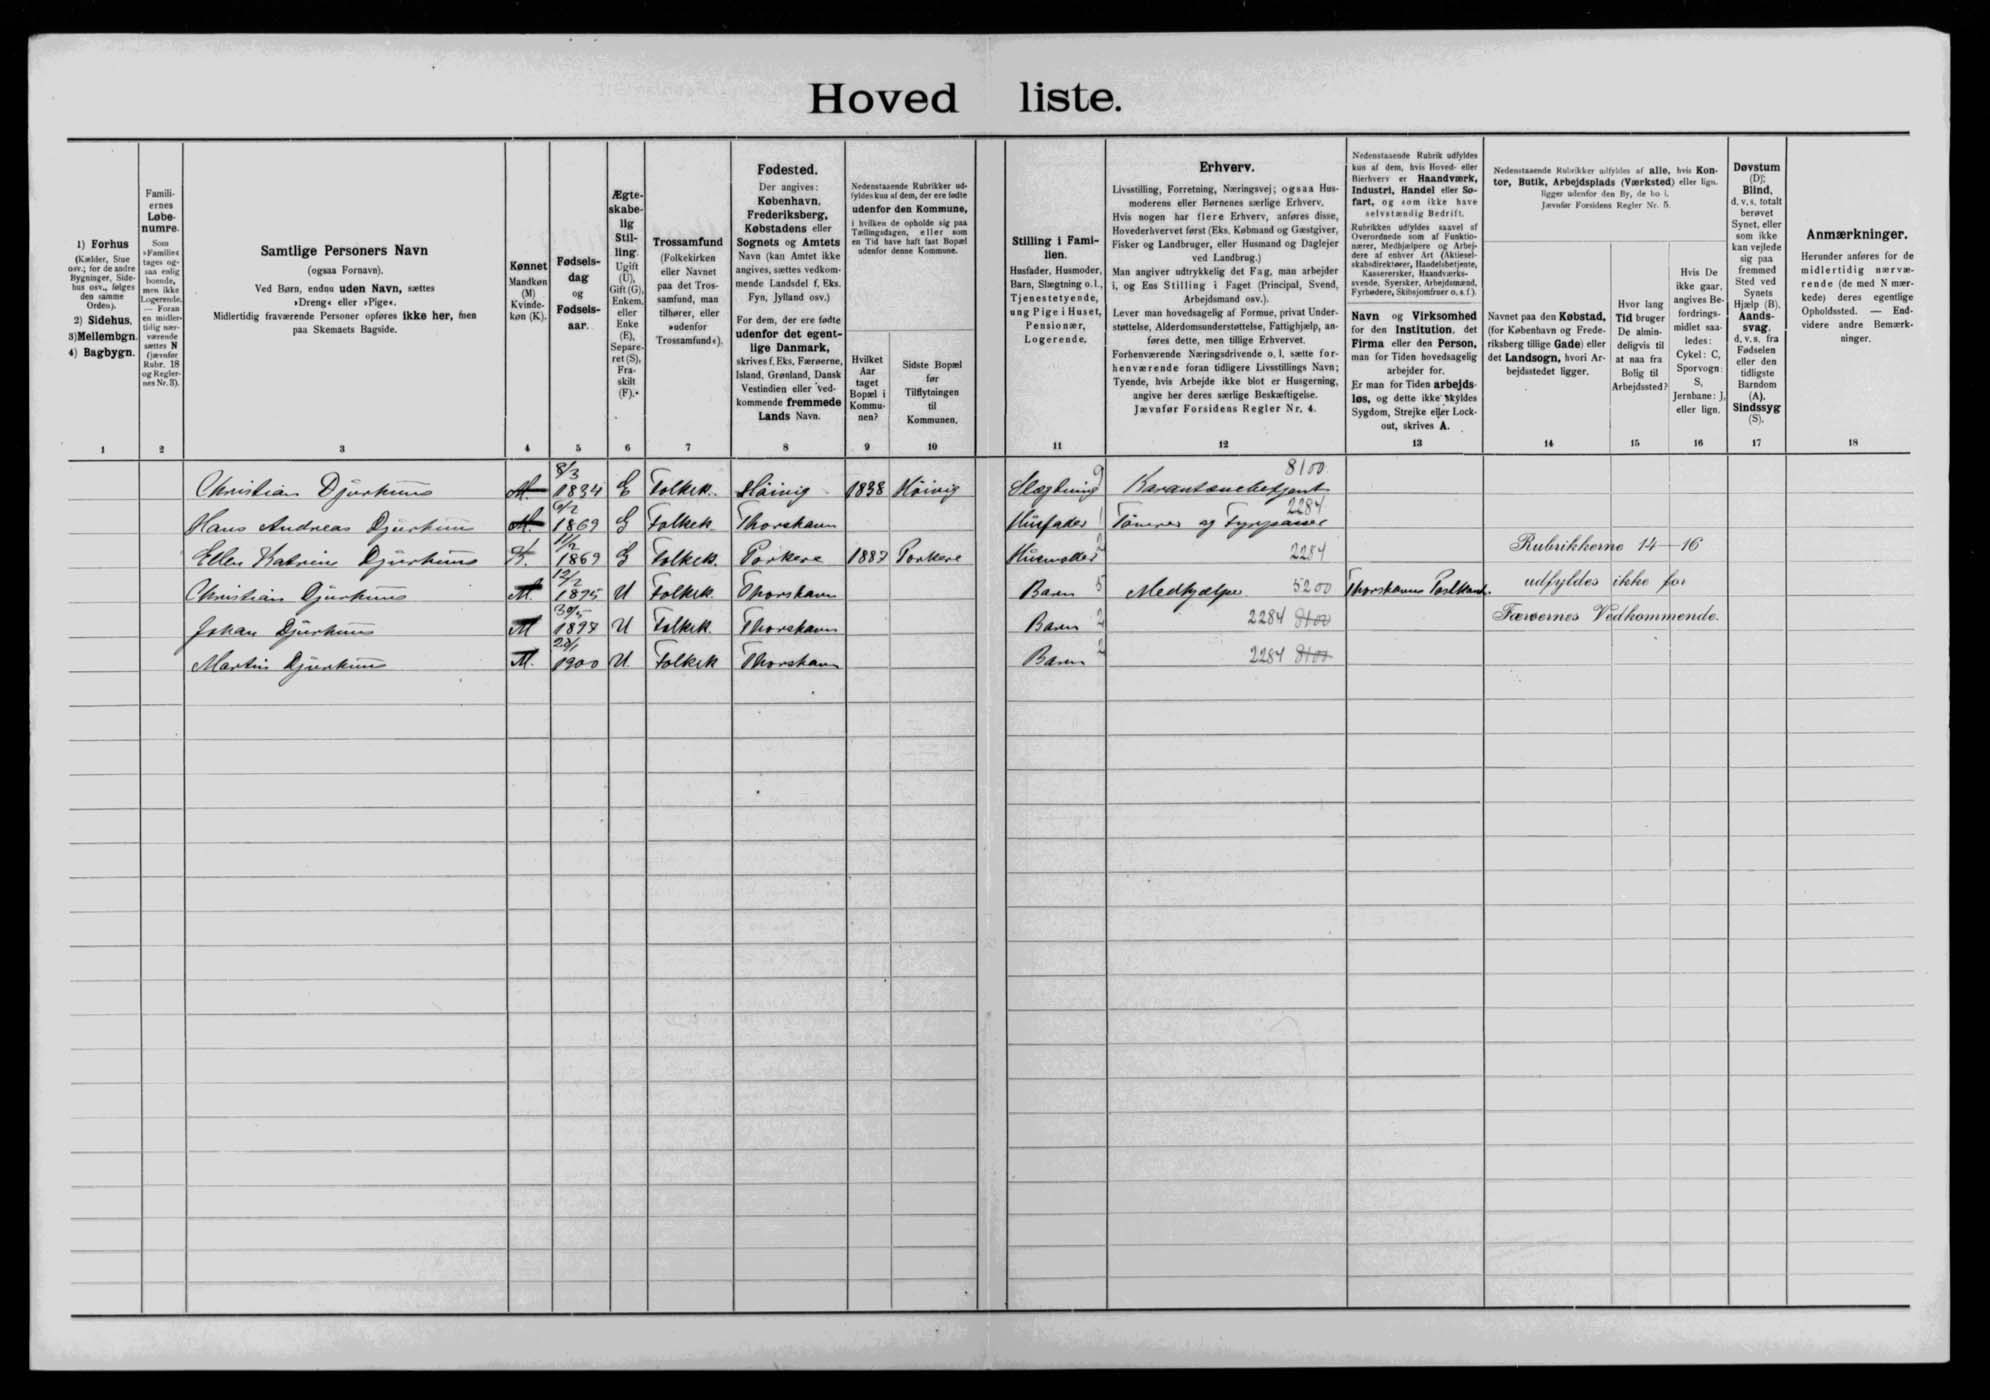 Hoved liste.
1) Forhus
(Kælder, Stue
osv.; for de andre
Bygninger, Side-
hus osv., følges
den samme
Orden).
2) Sidehus.
3) Mellembgn.
4) Bagbygn.
1
Famili-
ernes
Løbe-
numre.
Som
»Familie«
tages og-
saa enlig
boende,
men ikke
Logerende.
— Foran
en midler-
tidig nær-
værende
sættes N
(jævnfør
Rubr. 18
og Regler-
nes Nr. 3).
2
Samtlige Personers Navn
(ogsaa Fornavn).
Ved Børn, endnu uden Navn, sættes
»Dreng« eller »Pige«.
Midlertidig fraværende Personer opføres ikke her, men
paa Skemaets Bagside.
3
Kønnet
Mandkøn
(M)
Kvinde-
køn (K).
4
Fødsels-
dag
og
Fødsels-
aar.
5
Ægte-
skabe-
lig
Stil-
ling.
Ugift
(U),
Gift (G),
Enkem.
eller
Enke
(E),
Separe-
ret (S),
Fra-
skilt
(F).
6
Trossamfund
(Folkekirken
eller Navnet
paa det Tros-
samfund, man
tilhører, eller
»udenfor
Trossamfund«).
7
Fødested.
Der angives:
København,
Frederiksberg,
Købstadens eller
Sognets og Amtets
Navn (kan Amtet ikke
angives, sættes vedkom-
mende Landsdel f. Eks.
Fyn, Jylland osv.)
For dem, der ere fødte
udenfor det egent-
lige Danmark,
skrives f. Eks. Færøerne,
Island, Grønland, Dansk
Vestindien eller ved-
kommende fremmede
Lands Navn.
8
Nedenstaaende Rubrikker ud-
fyldes kun af dem, der ere fødte
udenfor den Kommune,
i hvilken de opholde sig paa
Tællingsdagen, eller som
en Tid have haft fast Bopæl
udenfor denne Kommune.
Hvilket
Aar
taget
Bopæl i
Kommu-
nen?
9
Sidste Bopæl
før
Tilflytningen
til
Kommunen.
10
Stilling i Fami-
lien.
Husfader, Husmoder,
Barn, Slægtning o. l.,
Tjenestetyende,
ung Pige i Huset,
Pensionær,
Logerende.
11
Erhverv.
Livsstilling, Forretning, Næringsvej; ogsaa Hus-
moderens eller Børnenes særlige Erhverv.
Hvis nogen har flere Erhverv, anføres disse,
Hovederhvervet først (Eks. Købmand og Gæstgiver,
Fisker og Landbruger, eller Husmand og Daglejer
ved Landbrug.)
Man angiver udtrykkelig det Fag, man arbejder
i, og Ens Stilling i Faget (Principal, Svend,
Arbejdsmand osv.).
Lever man hovedsagelig af Formue, privat Under-
støttelse, Alderdomsunderstøttelse, Fattighjælp, an-
føres dette, men tillige Erhvervet.
Forhenværende Næringsdrivende o. l. sætte for-
henværende foran tidligere Livsstillings Navn;
Tyende, hvis Arbejde ikke blot er Husgerning,
angive her deres særlige Beskæftigelse.
Jævnfør Forsidens Regler Nr. 4.
12
Nedenstaaende Rubrik udfyldes
kun af dem, hvis Hoved- eller
Bierhverv er Haandværk,
Industri, Handel eller Sø-
fart, og som ikke have
selvstændig Bedrift.
Rubrikken udfyldes saavel af
Overordnede som af Funktio-
nærer, Medhjælpere og Arbej-
dere af enhver Art (Aktiesel-
skabsdirektører, Handelsbetjente,
Kasserersker, Haandværks-
svende, Syersker, Arbejdsmænd,
Fyrbødere, Skibsjomfruer o. s. f.).
Navn og Virksomhed
for den Institution, det
Firma eller den Person,
man for Tiden hovedsagelig
arbejder for.
Er man for Tiden arbejds-
løs, og dette ikke skyldes
Sygdom, Strejke eller Lock-
out, skrives A.
13
Nedenstaaende Rubrikker udfyldes af alle, hvis Kon-
tor, Butik, Arbejdsplads (Værksted) eller lign.
ligger udenfor den By, de bo i.
Jævnfør Forsidens Regler Nr. 5.
Navnet paa den Købstad,
(for København og Frede-
riksberg tillige Gade) eller
det Landsogn, hvori Ar-
bejdsstedet ligger.
14
Hvor lang
Tid bruger
De almin-
deligvis til
at naa fra
Bolig til
Arbejdssted?
15
Hvis De
ikke gaar,
angives Be-
fordrings-
midlet saa-
ledes:
Cykel: C,
Sporvogn:
S,
Jernbane: J,
eller lign.
16
Døvstum
(D);
Blind,
d. v. s. totalt
berøvet
Synet, eller
som ikke
kan vejlede
sig paa
fremmed
Sted ved
Synets
Hjælp (B).
Aands-
svag,
d. v. s. fra
Fødselen
eller den
tidligste
Barndom
(A).
Sindssyg
(S).
17
Anmærkninger.
Herunder anføres for de
midlertidig nærvæ-
rende (de med N mær-
kede) deres egentlige
Opholdssted. — End-
videre andre Bemærk-
ninger.
18
Christian Djurhuus M. 8/3 1834 E Folkek. Höivig 1838 Höivig Slægtning 9 Karantænebetjent 8100
Hans Andreas Djurhuus M. 9/2 1869 G Folkek. Thorshavn Husfader 1 Tömrer og Fyrpasser 2284
Ellen Katrine Djurhuus K. 11/2 1869 G Folkek. Porkere 1887 Porkere Husmoder 2 2284
Christian Djurhuus M. 12/2 1895 U Folkek. Thorshavn Barn 5 Medhjælper 5200 Thorshavns
Johan Djurhuus M 30/5 1897 U Folkek. Thorshavn Barn 2 2284 8100
Martin Djurhuus M. 23/1 1900 U Folkek Thorshavn Barn 2 2284 8100
Rubrikkerne 14—16
udfyldes ikke for
Færøernes Vedkommende.